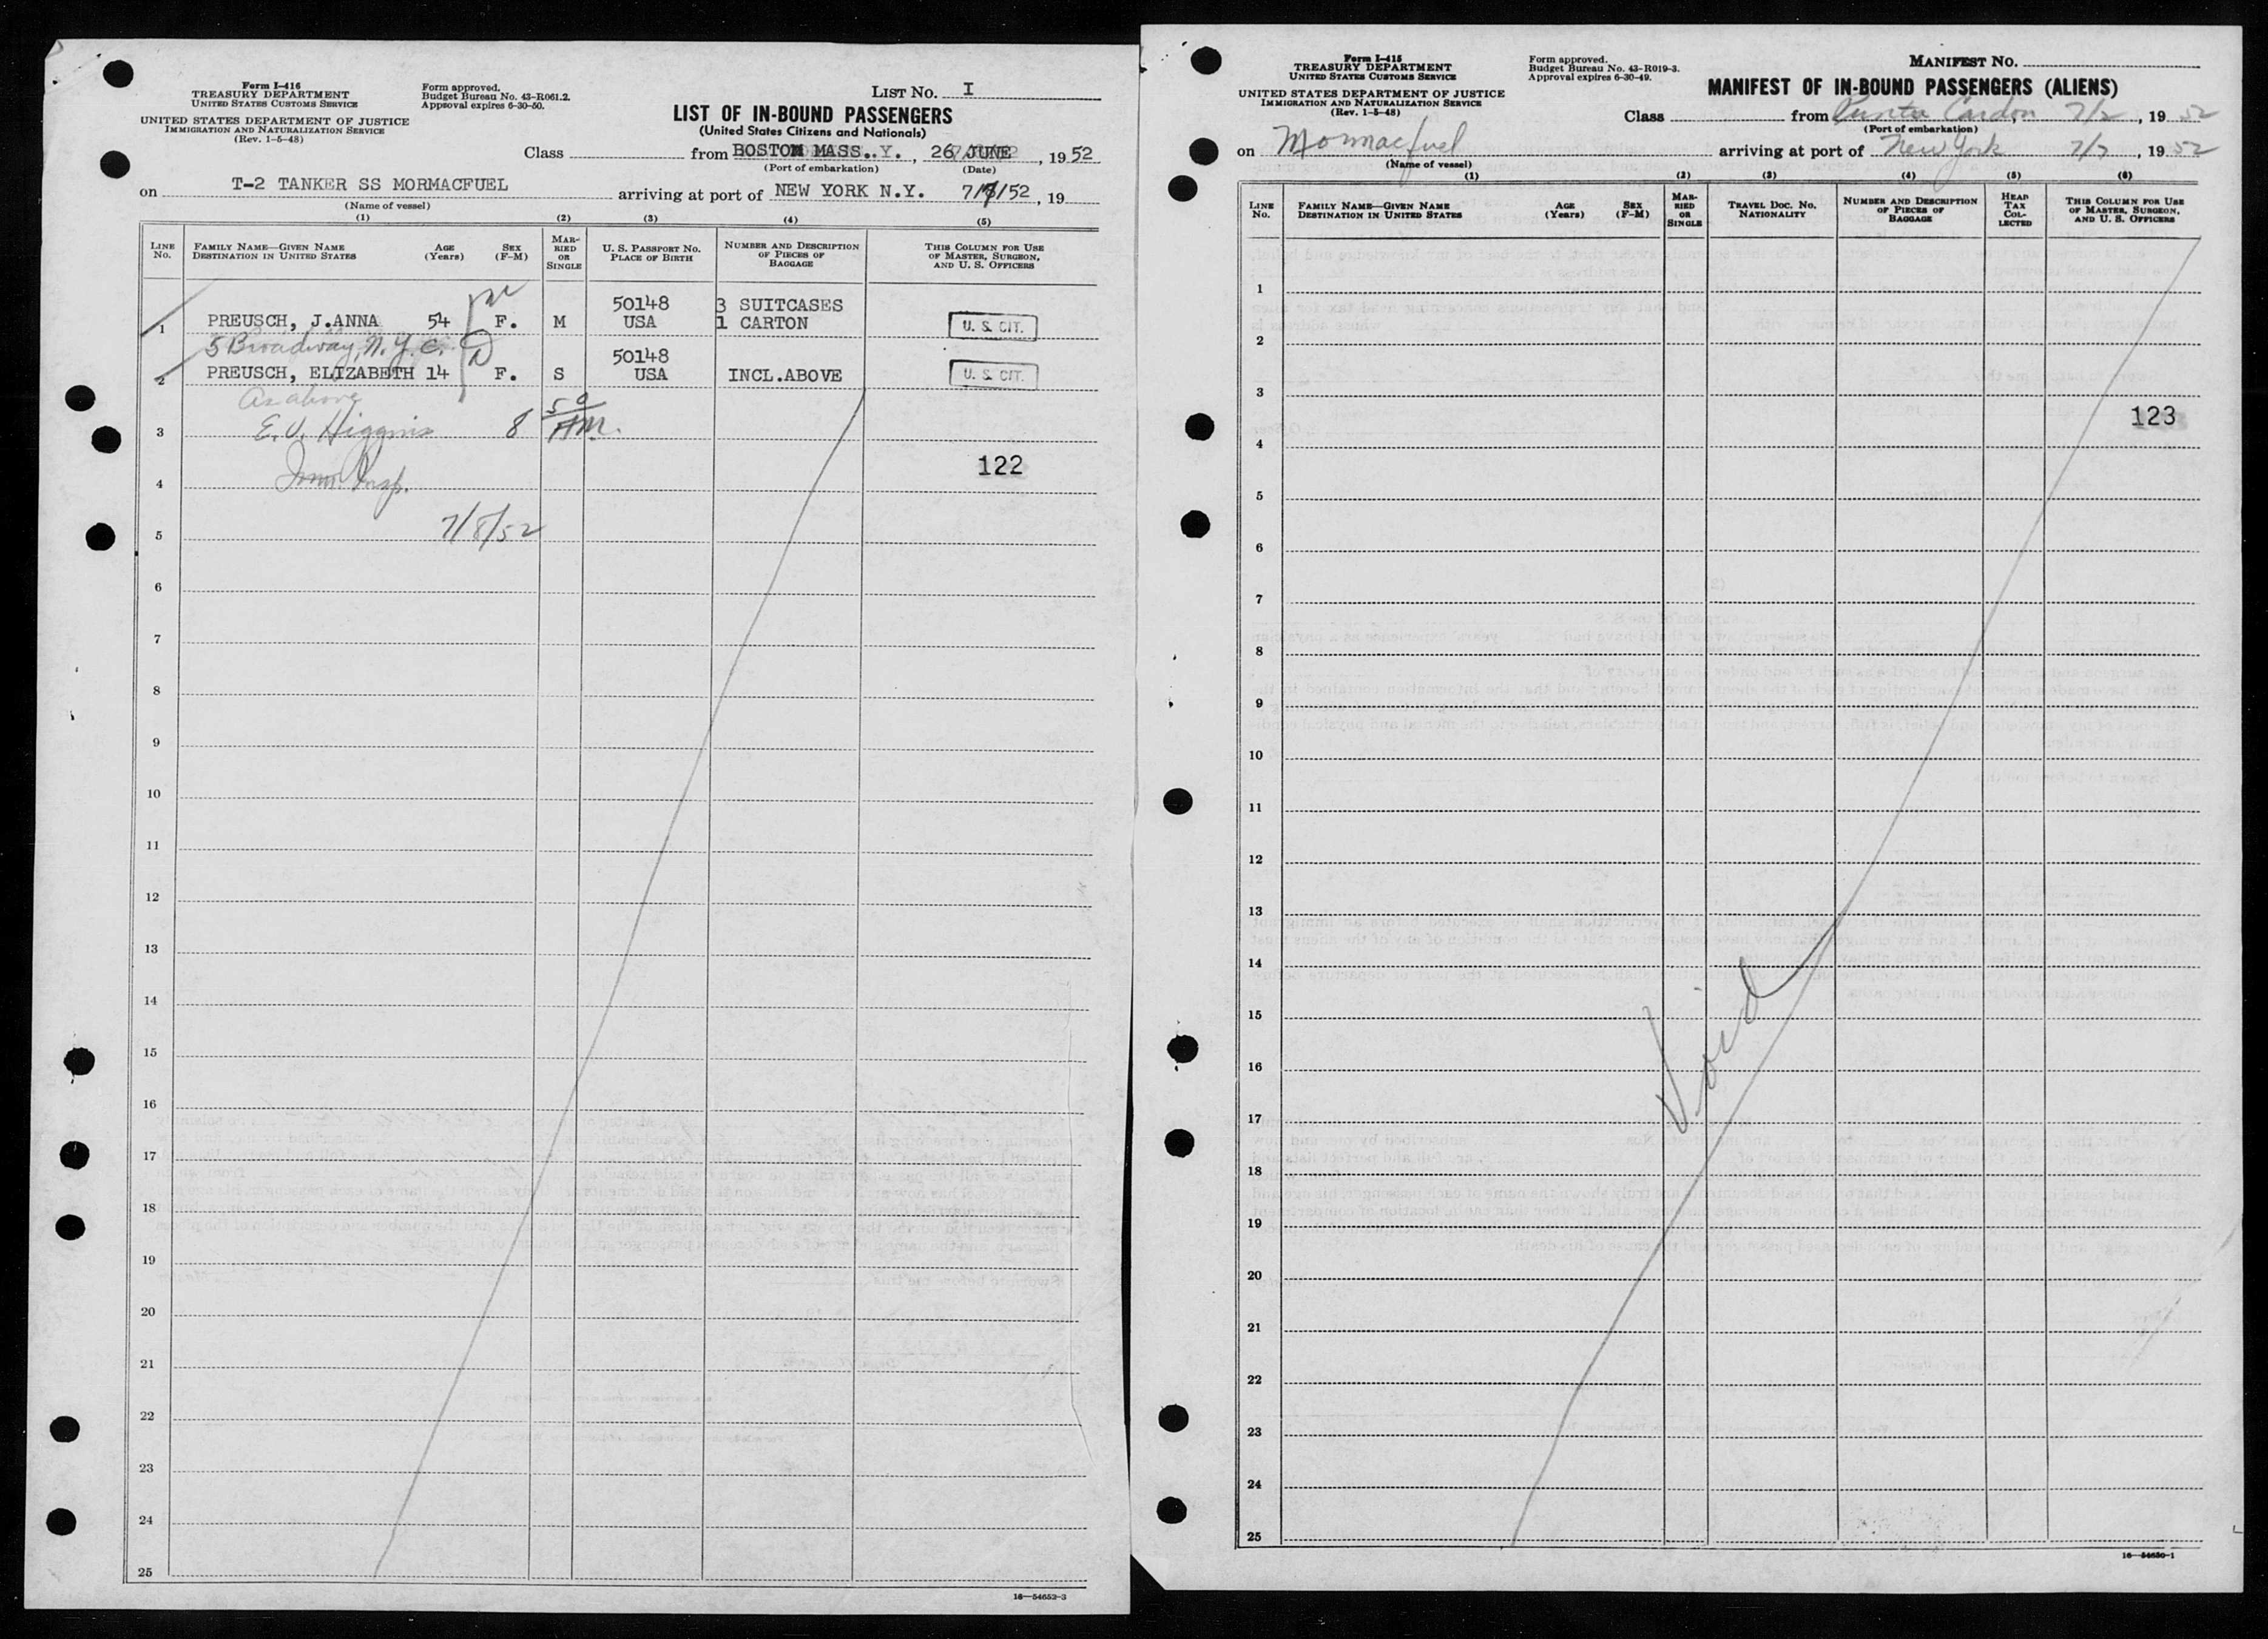 Form I-416
TREASURY DEPARTMENT
UNITED STATES CUSTOMS SERVICE
UNITED STATES DEPARTMENT OF JUSTICE
IMMIGRATION AND NATURALIZATION SERVICE
(Rev. 1-5-48)
Form approved.
Budget Bureau No. 43-R061.2.
Approval expires 6-30-50.
LIST No. I
LIST OF IN-BOUND PASSENGERS
(United States Citizens and Nationals)
Class from BOSTON MASS. , 26 JUNE , 1952
(Port of embarkation) (Date)
on T-2 TANKER SS MORMACFUEL arriving at port of NEW YORK N.Y. 7/ /52 , 19
(Name of vessel)
(1) (2) (3) (4) (5)
LINE No. FAMILY NAME—GIVEN NAME DESTINATION IN UNITED STATES AGE (Years) SEX (F-M) MARRIED OR SINGLE U. S. PASSPORT No. PLACE OF BIRTH NUMBER AND DESCRIPTION OF PIECES OF BAGGAGE THIS COLUMN FOR USE OF MASTER, SURGEON, AND U. S. OFFICERS
50148 3 SUITCASES
1 PREUSCH, J.ANNA 54 F. M USA 1 CARTON U. S. CIT.
5 Broadway, N.Y.C.
50148
2 PREUSCH, ELIZABETH 14 F. S USA INCL.ABOVE U. S. CIT.
As above
3 E.V. Higgins 8 50 AM.
122
4 Imm. Insp.
5 7/8/52
6
7
8
9
10
11
12
13
14
15
16
17
18
19
20
21
22
23
24
25
16—54652-3
Form I-415
TREASURY DEPARTMENT
UNITED STATES CUSTOMS SERVICE
UNITED STATES DEPARTMENT OF JUSTICE
IMMIGRATION AND NATURALIZATION SERVICE
(Rev. 1-5-48)
Form approved.
Budget Bureau No. 43-R019-3.
Approval expires 6-30-49.
MANIFEST No.
MANIFEST OF IN-BOUND PASSENGERS (ALIENS)
Class from Punta Cardon 7/2 , 19 52
(Port of embarkation)
on Mormacfuel arriving at port of New York 7/7 , 19 52
(Name of vessel)
(1) (2) (3) (4) (5) (6)
LINE No. FAMILY NAME—GIVEN NAME DESTINATION IN UNITED STATES AGE (Years) SEX (F-M) MARRIED OR SINGLE TRAVEL DOC. No. NATIONALITY NUMBER AND DESCRIPTION OF PIECES OF BAGGAGE HEAD TAX COLLECTED THIS COLUMN FOR USE OF MASTER, SURGEON, AND U. S. OFFICERS
1
2
3
123
4
5
6
7
8
9
10
11
12
13
14
15
Void
16
17
18
19
20
21
22
23
24
25
16—54650-1